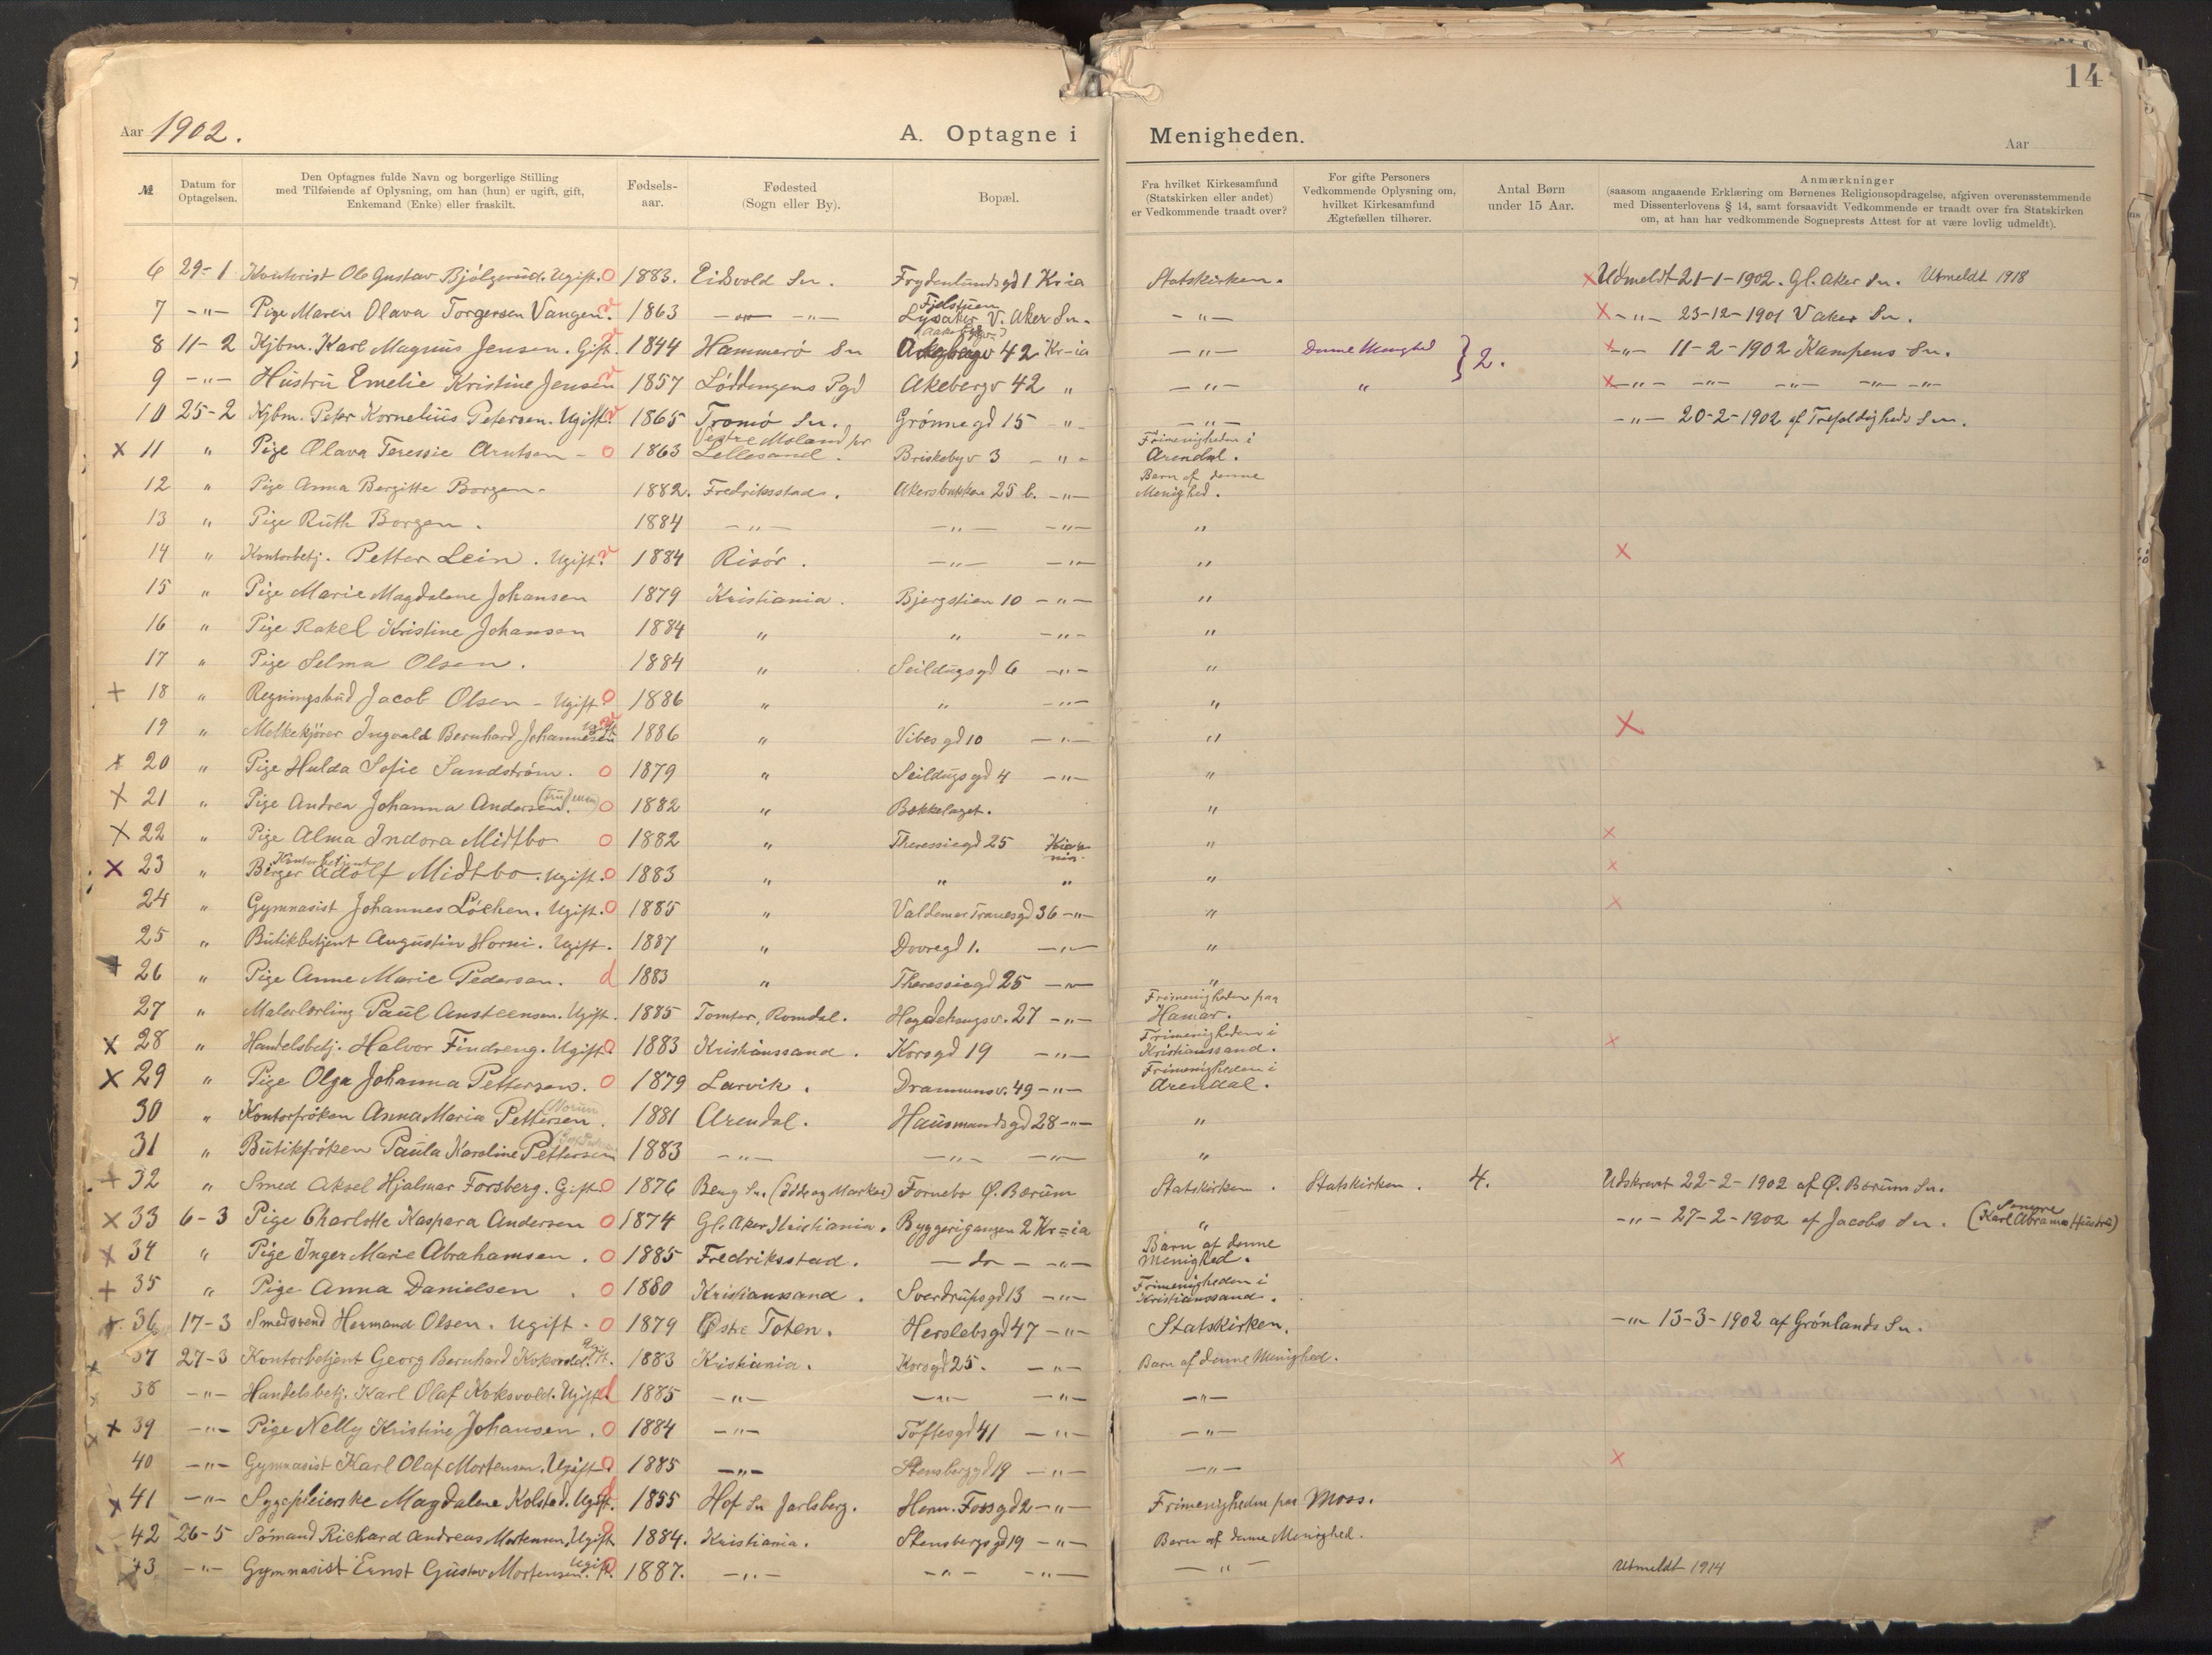 14
Aar 1902. A. Optagne i Menigheden. Aar
№
Datum for Optagelsen.
Den Optagnes fulde Navn og borgerlige Stilling
med Tilføiende af Oplysning, om han (hun) er ugift, gift,
Enkemand (Enke) eller fraskilt.
Fødsels-
aar.
Fødested
(Sogn eller By).
Bopæl.
Fra hvilket Kirkesamfund
(Statskirken eller andet)
er Vedkommende traadt over?
For gifte Personers
Vedkommende Oplysning om,
hvilket Kirkesamfund
Ægtefællen tilhører.
Antal Børn
under 15 Aar.
Anmærkninger
(saasom angaaende Erklæring om Børnenes Religionsopdragelse, afgiven overensstemmende
med Dissenterlovens § 14, samt forsaavidt Vedkommende er traadt over fra Statskirken
om, at han har vedkommende Sogneprests Attest for at være lovlig udmeldt).
6 29-1 Kontorist Ole Gustav Bjølgerud. Ugift. O 1883. Eidsvold Sn. Frydenlundsgd 1 Kr-ia Statskirken. x Udmeldt 21-1-1902. Gl. Aker Sn. Utmeldt 1918
7 -"- Pige Maren Olava Torgersen Vangen. 1863 -"- -"- Fjelstuen Lysaker V. Aker Sn. -"- x -"- 23-12-1901 V Aker Sn.
8 11-2 Kjbm. Karl Magnus Jensen. Gift. 1844 Hammerö Sn 42 Kr-ia -"- Denne Menighed } 2. x -"- 11-2-1902 Kampens Sn.
9 -"- Hustru Emelie Kristine Jensen 1857 Löddingens Pgd Akebergv 42 " -"- " x -"- -"- -"- -"- -"-
10 25-2 Kjbm. Peter Kornelius Petersen. Ugift. 1865 Tromö Sn. Grönnegd 15 -"- -"- -"- 20-2-1902 af Trefoldigheds Sn.
x 11 " Pige Olava Teressie Arntsen - O 1863 Vestre Moland pr Lellesand. Briskebyv 3 -"- Frimenigheden i Arendal.
12 " Pige Anna Bergitte Borgen. 1882. Fredriksstad. Akersbakken 25 b. -"- Barn af denne Menighed.
13 " Pige Ruth Borgen. 1884 -"- -"- -"- "
14 " Kontorbetj. Petter Lein. Ugift. 1884 Risör. -"- -"- " x
15 " Pige Marie Magdalene Johansen 1879 Kristiania. Bjergstien 10 -"- "
16 " Pige Rakel Kristine Johansen 1884 " " -"- "
17 " Pige Selma Olsen. 1884 " Seildugsgd 6 -"- "
+ 18 " Regningsbud Jacob Olsen - Ugift. O 1886 " " -"- "
19 " Melkekjörer Ingvald Bernhard Johannesen Ugift 1886 " Vibesgd 10 -"- " x
x 20 " Pige Hulda Sofie Sandström. O 1879 " Seildugsgd 4 -"- "
x 21 " Pige Andrea Johanna Andersen. O 1882 " Bækkelaget. "
x 22 " Pige Alma Indora Midtbo O 1882 " Theressiegd 25 " x
x 23 " Kontorbetjent Birger Adolf Midtbo. Ugift. O 1883 " " " " x
24 " Gymnasist Johannes Löchen. Ugift. O 1885 " Valdemar Tranesgd 36 -"- " x
25 " Butikbetjent Augustin Horni. Ugift. 1887 " Dovregd 1. -"- "
+ 26 " Pige Anne Marie Pedersen. d 1883 " Theressiegd 25 -"- "
27 " Malerlærling Paul Ansteensen. Ugift. 1885 Tomter, Romdal. Hægdehaugsv. 27 -"- Frimenigheden paa Hamar.
x 28 " Handelsbetj. Halvor Findreng. Ugift. O 1883 Kristianssand. Korsgd 19 -"- Frimenigheden i Kristianssand. x
x 29 " Pige Olga Johanna Pettersen. O 1879 Larvik. Drammensv. 49 -"- Frimenigheden i Arendal.
30 " Kontorfröken Anna Maria Pettersen. 1881 Arendal. Hausmandsgd 28 -"- "
31 " Butikfröken Paula Karoline Pettersen 1883 -"- -"- -"- "
+ 32 " Smed Aksel Hjalmar Forsberg. Gift. O 1876 Berg Sn. (Idd og Marker) Fornebo Ø. Bærum Statskirken. Statskirken. 4. Udskrevet 22-2-1902 af Ø. Bærums Sn.
x 33 6-3 Pige Charlotte Kaspara Andersen O 1874 Gl. Aker, Kristiania. Byggerigangen 2 Kr=ia " -"- 27-2-1902 af Jacobs Sn. (Senere Karl Abrams Hustru)
x 34 " Pige Inger Marie Abrahamsen. O 1885 Fredriksstad. - do - -"- Barn af denne Menighed.
+ 35 " Pige Anna Danielsen. O 1880 Kristianssand. Sverdrupsgd 13 -"- Frimenigheden i Kristianssand.
+ 36 17-3 Smedsvend Hermand Olsen. Ugift. O 1879 Østre Toten. Herslebsgd 47 -"- Statskirken. -"- 15-3-1902 af Grönlands Sn.
x 37 27-3 Kontorbetjent Georg Bernhard Ugift. 1883 Kristiania. Korsgd 25. -"- Barn af denne Menighed.
x 38 -"- Handelsbetj. Karl Olaf Koksvold. Ugift. d 1885 -"- -"- -"- -"-
x 39 -"- Pige Nelly Kristine Johansen. O 1884 -"- Toftesgd 41 -"- -"-
40 -"- Gymnasist Karl Olaf Mortensen. Ugift. O 1885 -"- Stensberggd 19 -"- -"- x
x 41 -"- Sygepleierske Magdalene Kolstad. Ugift. 1855 Hof Sn Jarlsberg. Henr. Fossgd 2 -"- Frimenigheden paa Moss.
42 26-5 Sömand Richard Andreas Mortensen, Ugift 1884. Kristiania. Stensbergsgd 19 -"- Barn af denne Menighed.
43 -"- Gymnasist Ernst Gustav Mortensen. Ugift. 1887. -"- -"- -"- -"- Utmeldt 1914